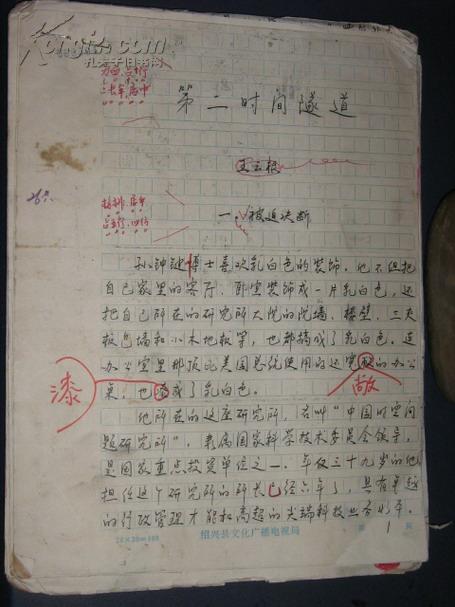 Kongfz.com
孔夫子旧书网
第二时间隧道
王云根
一、被迫决断
孙钟键博士喜欢乳白色的装饰。他不但把
自己家里的客厅、卧室装饰成一片乳白色，还
把自己所在的研究所大院的院墙、楼壁、三夹
板包墙和小木地板等，也都搞成了乳白色。连
办公室里那顶比美国总统使用的还宽敞的办公
桌，也漆成了乳白色。
漆
敞
他所在的这座研究所，名叫“中国时空问
题研究所”，隶属国家科学技术委员会领导，
是国家重点投资单位之一。年仅三十九岁的他
担任这个研究所的所长已经六年了，具有卓越
的行政管理才能和高超的尖端科技业务水平。
20×20=400
绍兴县文化广播电视局
第 1 页